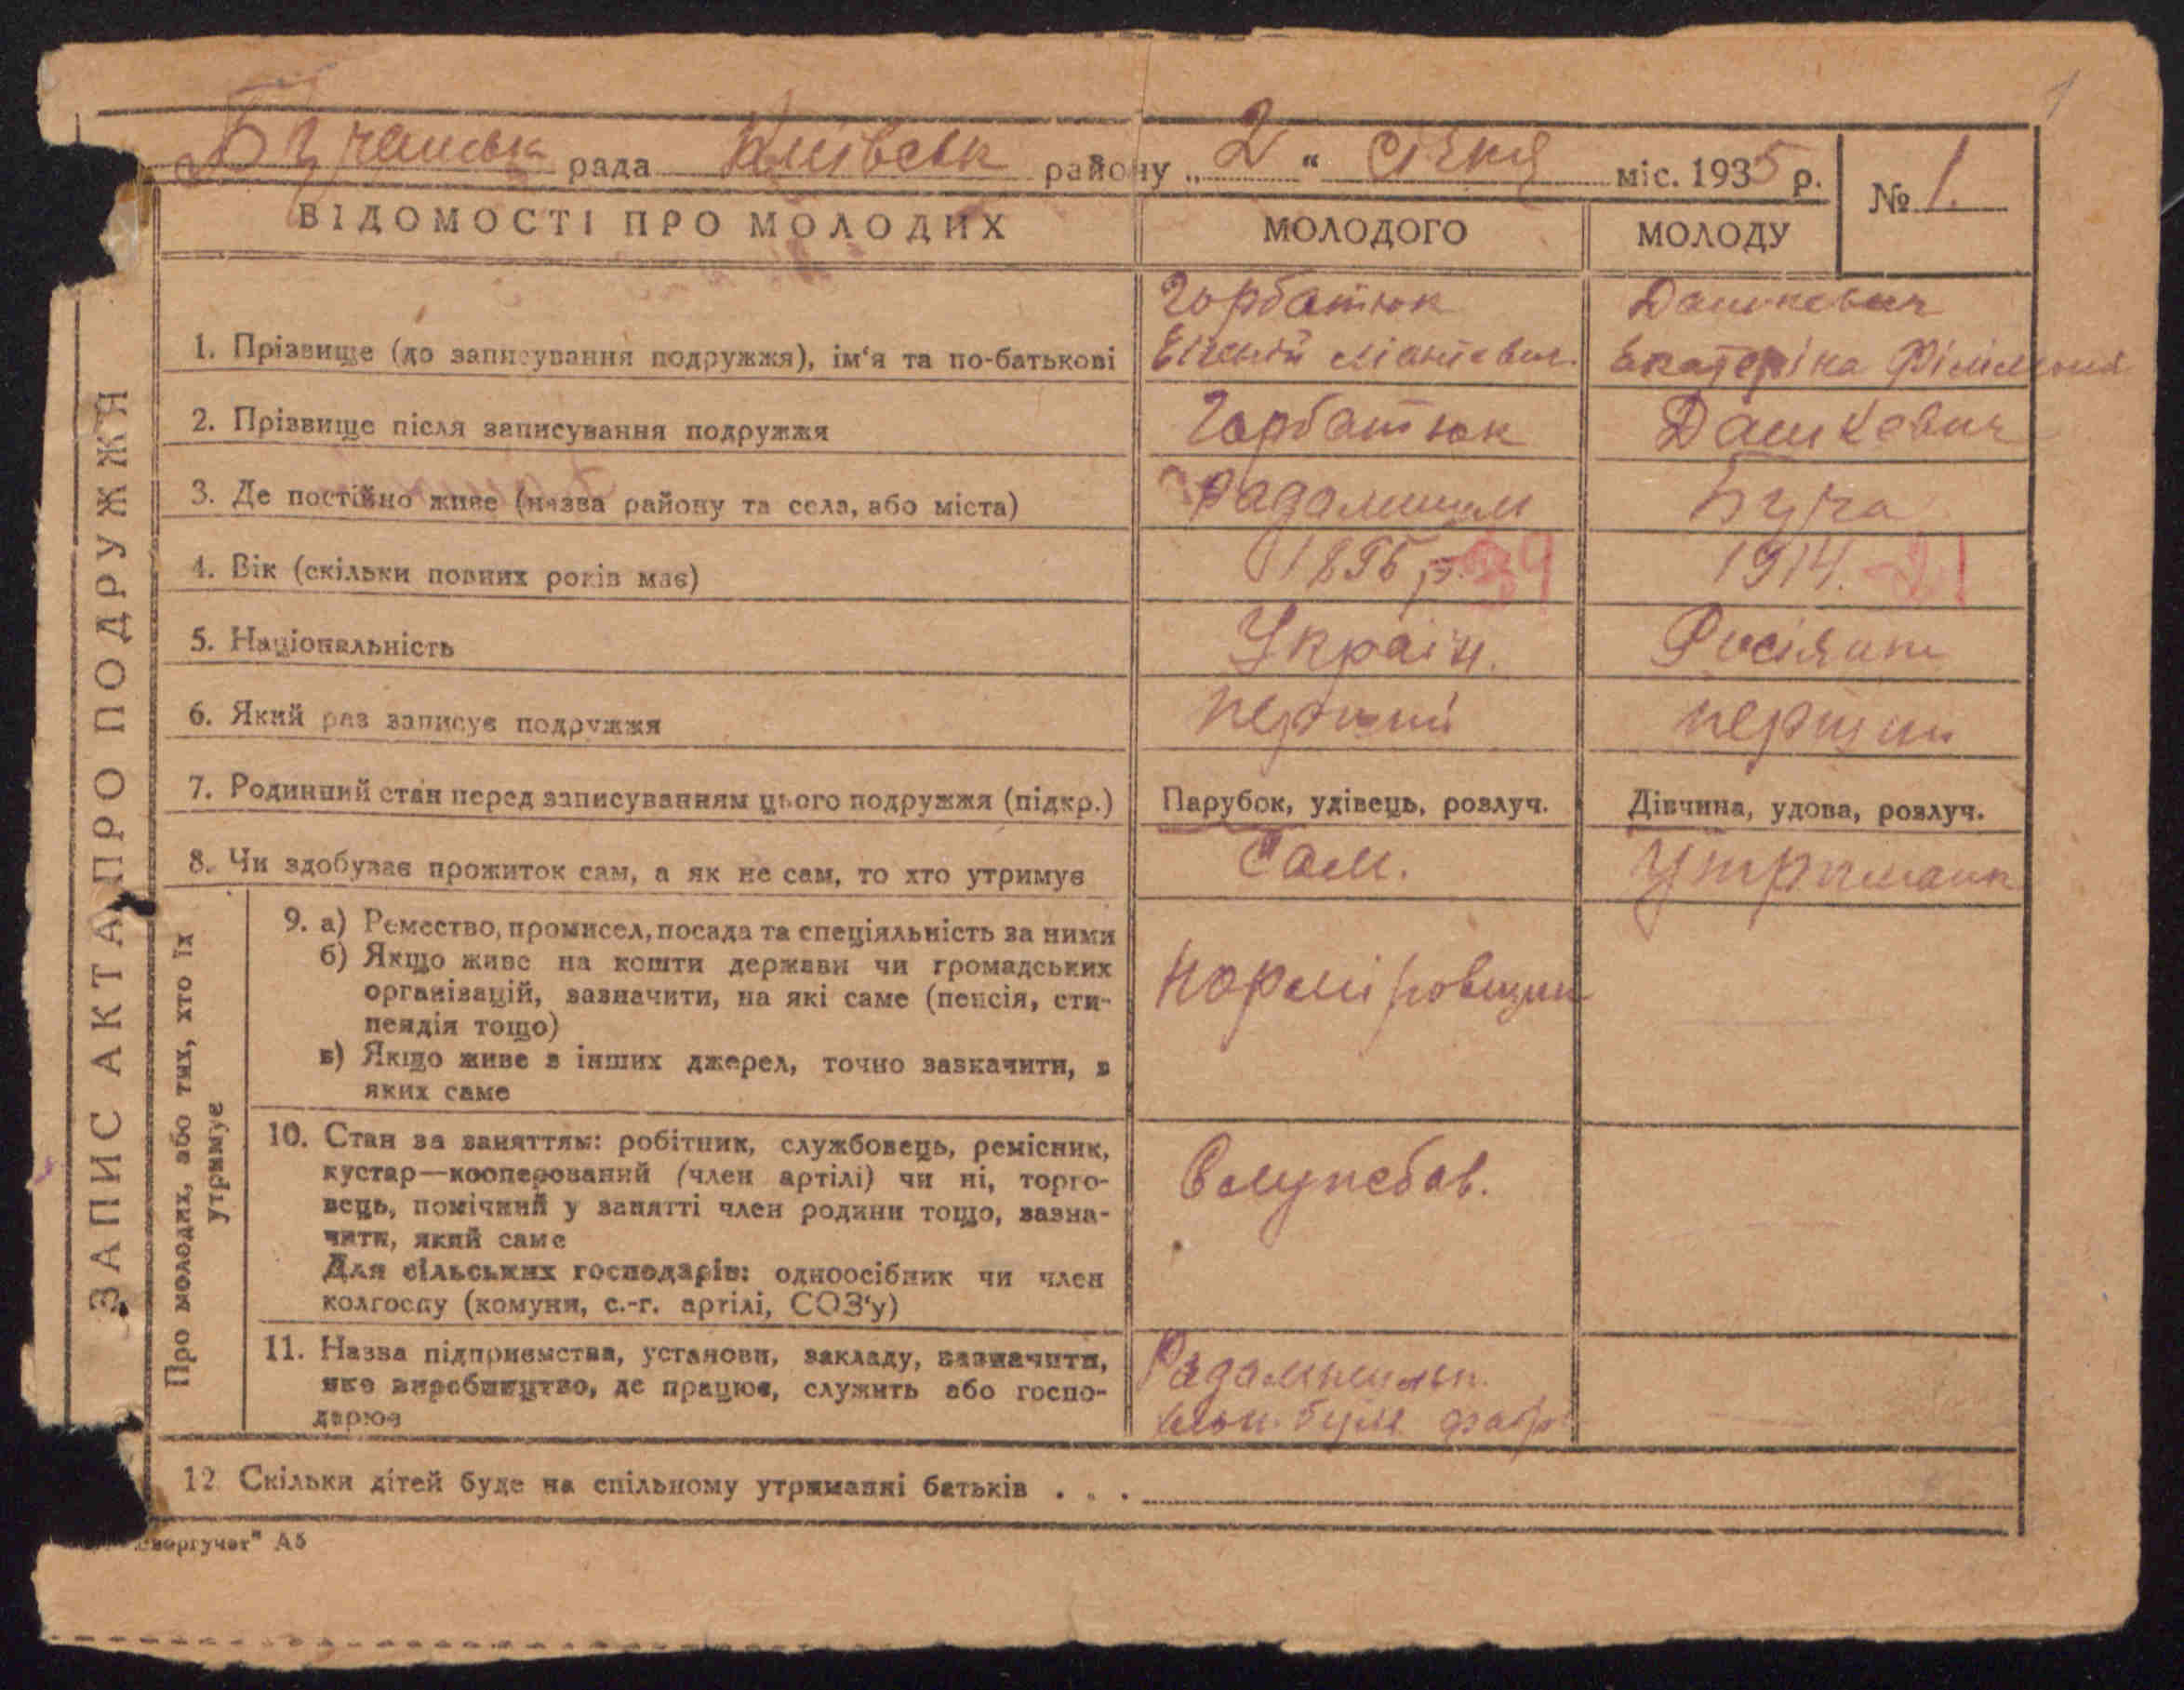 1
Бучанськ рада Київськ району „ 2 " січня міс. 1935 р.
№ 1.
ВІДОМОСТІ ПРО МОЛОДИХ
МОЛОДОГО
МОЛОДУ
ЗАПИС АКТА ПРО ПОДРУЖЖЯ
1. Прізвище (до записування подружжя), ім‘я та по-батькові
Горбатюк
Дашкевич
Екатеріна
2. Прізвище після записування подружжя
Горбатюк
Дашкевич
3. Де постійно живе (назва району та села, або міста)
Радомишл
Буча
4. Вік (скільки повних років має)
1895 р. -39
1914. -21
5. Національність
Україн.
Росіянк
6. Який раз записує подружжя
перший
перший
7. Родинний стан перед записуванням цього подружжя (підкр.)
Парубок, удівець, розлуч.
Дівчина, удова, розлуч.
8. Чи здобуває прожиток сам, а як не сам, то хто утримує
Сам.
Утриманк
Про молодих, або тих, хто їх
утримує
9. а) Ремество, промисел, посада та спеціяльність за ними
б) Якщо живе на кошти держави чи громадських
організацій, зазначити, на які саме (пенсія, сти-
пендія тощо)
в) Якщо живе з інших джерел, точно зазначити, з
яких саме
Норміровщик
10. Стан за заняттям: робітник, службовець, ремісник,
кустар—кооперований (член артілі) чи ні, торго-
вець, помічний у занятті член родини тощо, зазна-
чити, який саме
Для сільських господарів: одноосібник чи член
колгоспу (комуни, с.-г. артілі, СОЗ‘у)
Служебов.
11. Назва підприємства, установи, закладу, зазначити,
яке виробництво, де працює, служить або госпо-
дарює
Радомишльк.
бум. фабр
12 Скільки дітей буде на спільному утриманні батьків . . .
А5